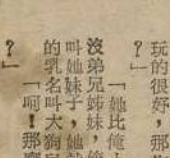 玩的很好，那
？」
「她比俺
沒弟兄姊妹，
叫她妹子，她
的乳名叫大狗
？」
「啊！那